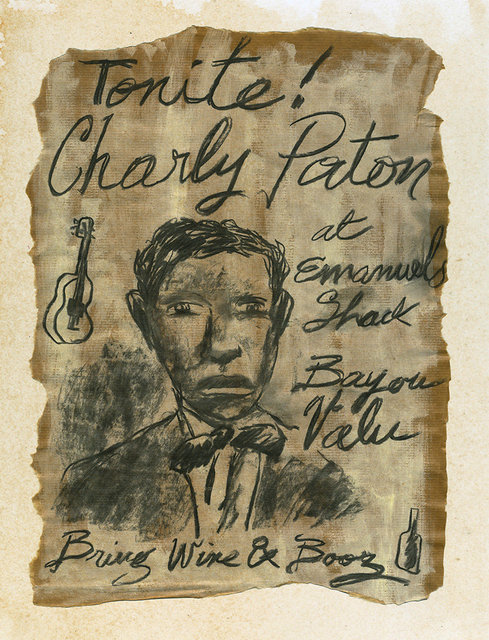 Tonite!
Charly Paton
at
Emanuels
Shack
Bayou
Valu
Bring Wine & Booz